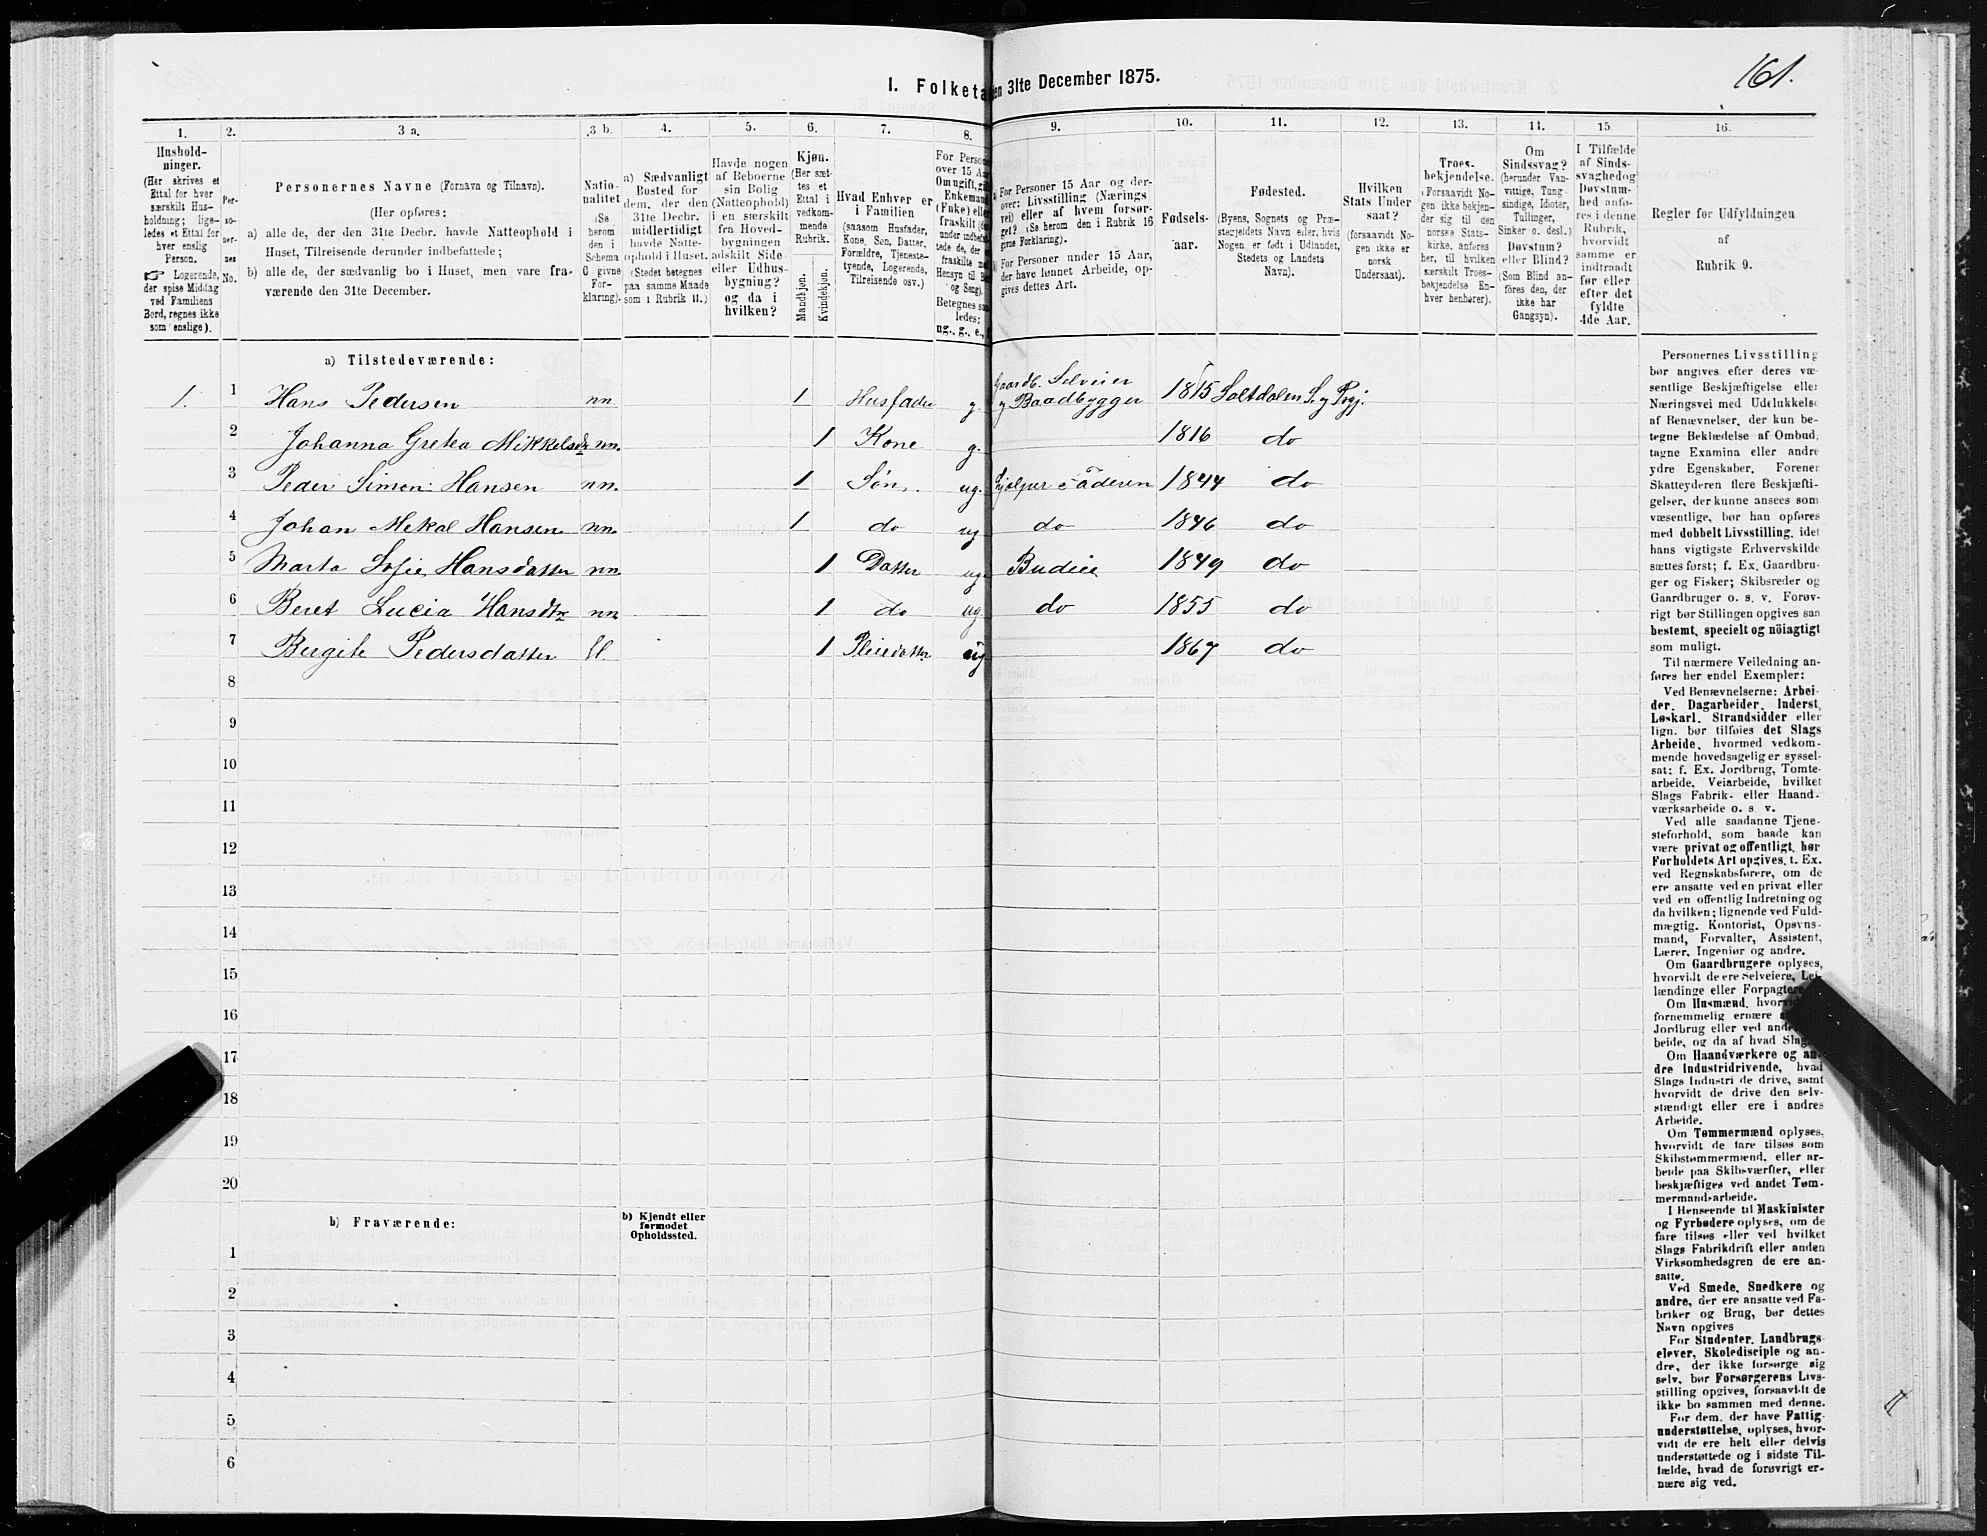 161.
I. Folketa en 31te December 1875.
1. 2. 3 a. 3 b. 4. 5. 6. 7. 8. 9. 10. 11. 12. 13. 14. 15 16.
Hushold-
ninger.
(Her skrives et
Ettal for hver
særskilt Hus-
holdning; lige-
ledes et Ettal for
hver enslig
Person.
☞ Logerende,
der spise Middag
ved Familiens
Bord, regnes ikke
som enslige).
Per-
so-
ner-
nes
No.
Personernes Navne (Fornavn og Tilnavn).
(Her opføres:
a) alle de, der den 31te Decbr. havde Natteophold i
Huset, Tilreisende derunder indbefattede;
b) alle de, der sædvanlig bo i Huset, men vare fra-
værende den 31te December.
Natio-
nalitet
(Se
herom
den i
Schema
O givne
For-
klaring).
a) Sædvanligt
Bosted for
dem, der den
31te Decbr.
midlertidigt
havde Natte-
ophold i Huset.
(Stedet betegnes
paa samme Maade
som i Rubrik 11.)
Havde nogen
af Beboerne
sin Bolig
(Natteophold)
i en særskilt
fra Hoved-
bygningen
adskilt Side-
eller Udhus-
bygning?
og da i
hvilken?
Kjøn.
(Her sæt-
tes et
Ettal i
vedkom-
mende
Rubrik.
Mandkjøn.
Kvindekjøn.
Hvad Enhver er
i Familien
(saasom Husfader,
Kone, Søn, Datter,
Forældre, Tjeneste-
tyende, Logerende,
Tilreisende osv.)
For Persone
over 15 Aar
Om ugift, gift
Enkemand
(Enke) elle
fraskilt
Betegnes saa
ledes:
ug., g., e.,
a) For Personer 15 Aar og der-
over: Livsstilling (Nærings
vei) eller af hvem forsør-
get? (Se herom den i Rubrik 16
givne Forklaring).
b) For Personer under 15 Aar,
der have lønnet Arbeide, op-
gives dettes Art.
Fødsels-
aar.
Fødested.
(Byens, Sognets og Præ-
stegjeldets Navn eller, hvis
Nogen er født i Udlandet,
Stedets og Landets
Navn).
Hvilken
Stats Under
saat?
(forsaavidt No-
gen ikke er
norsk
Undersaat).
Troes-
bekjendelse.
(Forsaavidt No-
gen ikke bekjen-
der sig til den
norske Stats-
kirke, anføres
her, til hvilken
særskilt Troes-
bekjendelse En-
hver henhører).
Om
Sindssvag?
(herunder Van-
vittige, Tung-
sindige, Idioter,
Tullinger,
Sinker o. desl.)
Døvstum?
eller Blind?
(Som Blind an-
føres den, der
ikke har
Gangsyn).
I Tilfælde
af Sinds-
svaghed og
Døvstum-
hed anfø-
res i denne
Rubrik,
hvorvidt
samme er
indtraadt
før eller
efter det
fyldte
4de Aar.
Regler for Udfyldningen
af
Rubrik 9.
a) Tilstedeværende:
1. 1 Hans Pedersen nn 1 Husfader g. Gaardb. Selveier
og Baadbygger 1815 Saltdalen S. og Prgj.
2 Johanna Gretea Mikkelsdtr nn. 1 Kone g. 1816 do
3 Peder Simon Hansen nn. 1 Søn ug. Hjelper Faderen 1844 do
4 Johan Mekal Hansen nn. 1 do ug do 1846 do
5 Marta Sofie Hansdatter nn. 1 Datter ug. Budeie 1849 do
6 Beret Lucia Hansdtr nn 1 do ug. do 1855 do
7 Bergite Pedersdatter 1 Pleiedatter ug 1867 do
8
9
10
11
12
13
14
15
16
17
18
19
20
b) Fraværende:
b) Kjendt eller
formodet
Opholdssted.
1
2
3
4
5
6
Personernes Livsstilling
bør angives efter deres væ-
sentlige Beskjæftigelse eller
Næringsvei med Udelukkelse
af Benævnelser, der kun be-
tegne Beklædelse af Ombud,
tagne Examina eller andre
ydre Egenskaber. Forener
Skatteyderen flere Beskjæfti-
gelser, der kunne ansees som
væsentlige, bør han opføres
med dobbelt Livsstilling, idet
hans vigtigste Erhvervskilde
sættes først; f. Ex. Gaardbru-
ger og Fisker; Skibsreder og
Gaardbruger o. s. v. Forøv-
rigt bør Stillingen opgives saa
bestemt, specielt og nöiagtigt
som muligt.
Til nærmere Veiledning an-
føres her endel Exempler:
Ved Benævnelserne: Arbei-
der, Dagarbeider, Inderst,
Løskarl, Strandsidder eller
lign. bør tilføies det Slags
Arbeide, hvormed vedkom-
mende hovedsagelig er syssel-
sat; f. Ex. Jordbrug, Tomte-
arbeide, Veiarbeide, hvilket
Slags Fabrik- eller Haand-
værksarbeide o. s. v.
Ved alle saadanne Tjene-
steforhold, som baade kan
være privat og offentligt, bør
Forholdets Art opgives, t. Ex.
ved Regnskabsførere, om de
ere ansatte ved en privat eller
ved en offentlig Indretning og
da hvilken; lignende ved Fuld-
mægtig, Kontorist, Opsyns-
mand, Forvalter, Assistent,
Lærer, Ingeniør og andre.
Om Gaardbrugere oplyses,
hvorvidt de ere Selveiere, Lei-
lændinge eller Forpagtere
Om Husmænd, hvorvi
fornemmelig ernære
Jordbrug eller ved and
beide, og da af hvad Slag
Om Haandværkere og an-
dre Industridrivende, hvad
Slags Industri de drive, samt
hvorvidt de drive den selv-
stændigt eller ere i andres
Arbeide.
Om Tømmermænd oplyses,
hvorvidt de fare tilsøs som
Skibstømmermænd, eller ar-
beide paa Skibsværfter, eller
beskjæftiges ved andet Tøm-
mermandsarbeide.
I Henseende til Maskinister
og Fyrbødere oplyses, om de
fare tilsøs eller ved hvilket
Slags Fabrikdrift eller anden
Virksomhedsgren de ere an-
satte.
Ved Smede, Snedkere og
andre, der ere ansatte ved Fa-
briker og Brug, bør dettes
Navn opgives
For Studenter, Landbrugs-
elever, Skoledisciple og an-
dre, der ikke forsørge sig
selv, bør Forsørgerens Livs-
stilling opgives, forsaavidt de
ikke bo sammen med denne.
For dem, der have Fattig-
understøttelse, oplyses, hvor-
vidt de ere helt eller delvis
understøttede og i sidste Til-
fælde, hvad de forøvrigt er-
nære sig ved.